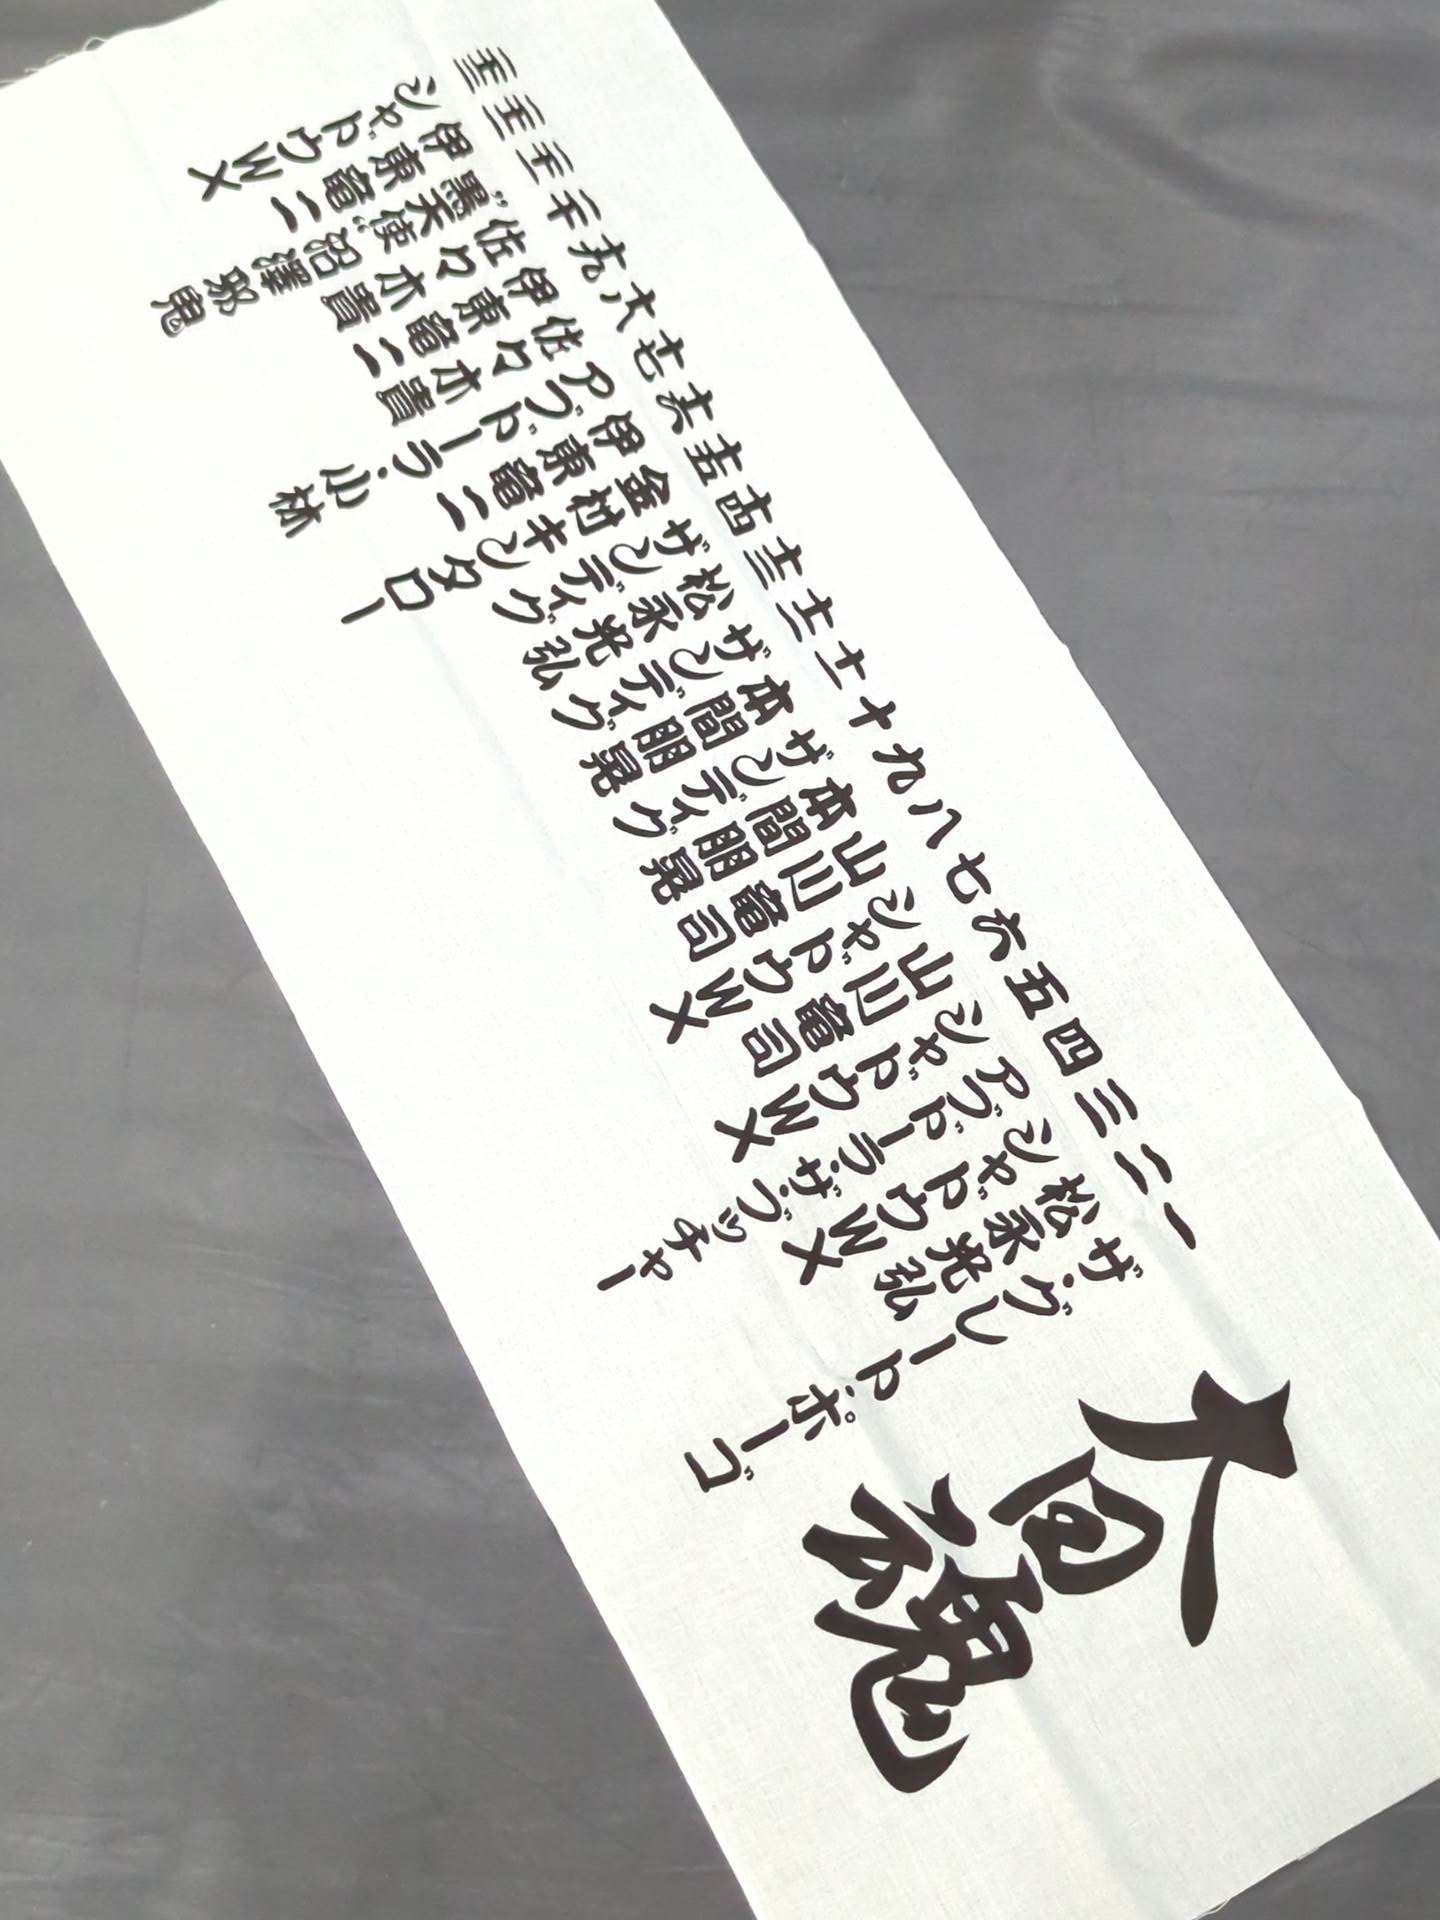 大日魂
一 ザ・グレート・ポーゴ
二 松永光弘
三 シャドウWX
四 アブドーラ・ザ・ブッチャー
五 シャドウWX
六 山川竜司
七 シャドウWX
八 山川竜司
九 本間朋晃
十 ザンディグ
十一 本間朋晃
十二 ザンディグ
十三 松永光弘
十四 ザンディグ
十五 金村キンタロー
十六 伊東竜二
十七 アブドーラ・小林
十八 佐々木貴
十九 伊東竜二
二十 佐々木貴
二十一 “黒天使”沼澤邪鬼
二十二 伊東竜二
二十三 シャドウWX